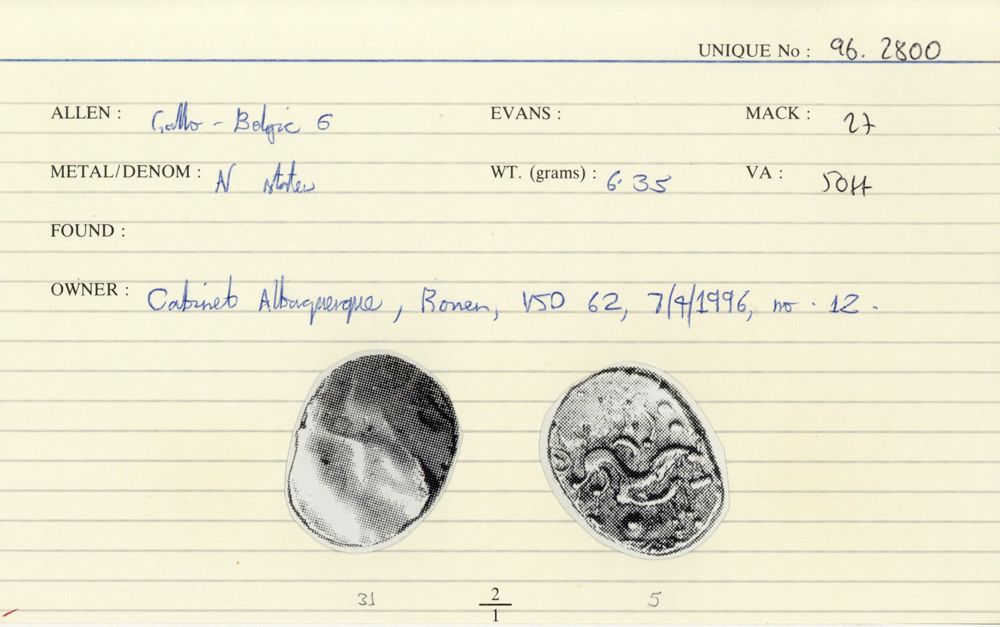 UNIQUE No : 96. 2800
ALLEN : Gallo - Belgic E EVANS : MACK : 27
METAL/DENOM : N stater WT. (grams) : 6.35 VA : 50++
FOUND :
OWNER : Cabinet Albuquerque, Rouen, VSO 62, 7/4/1996, no. 12.
31 2/1 5